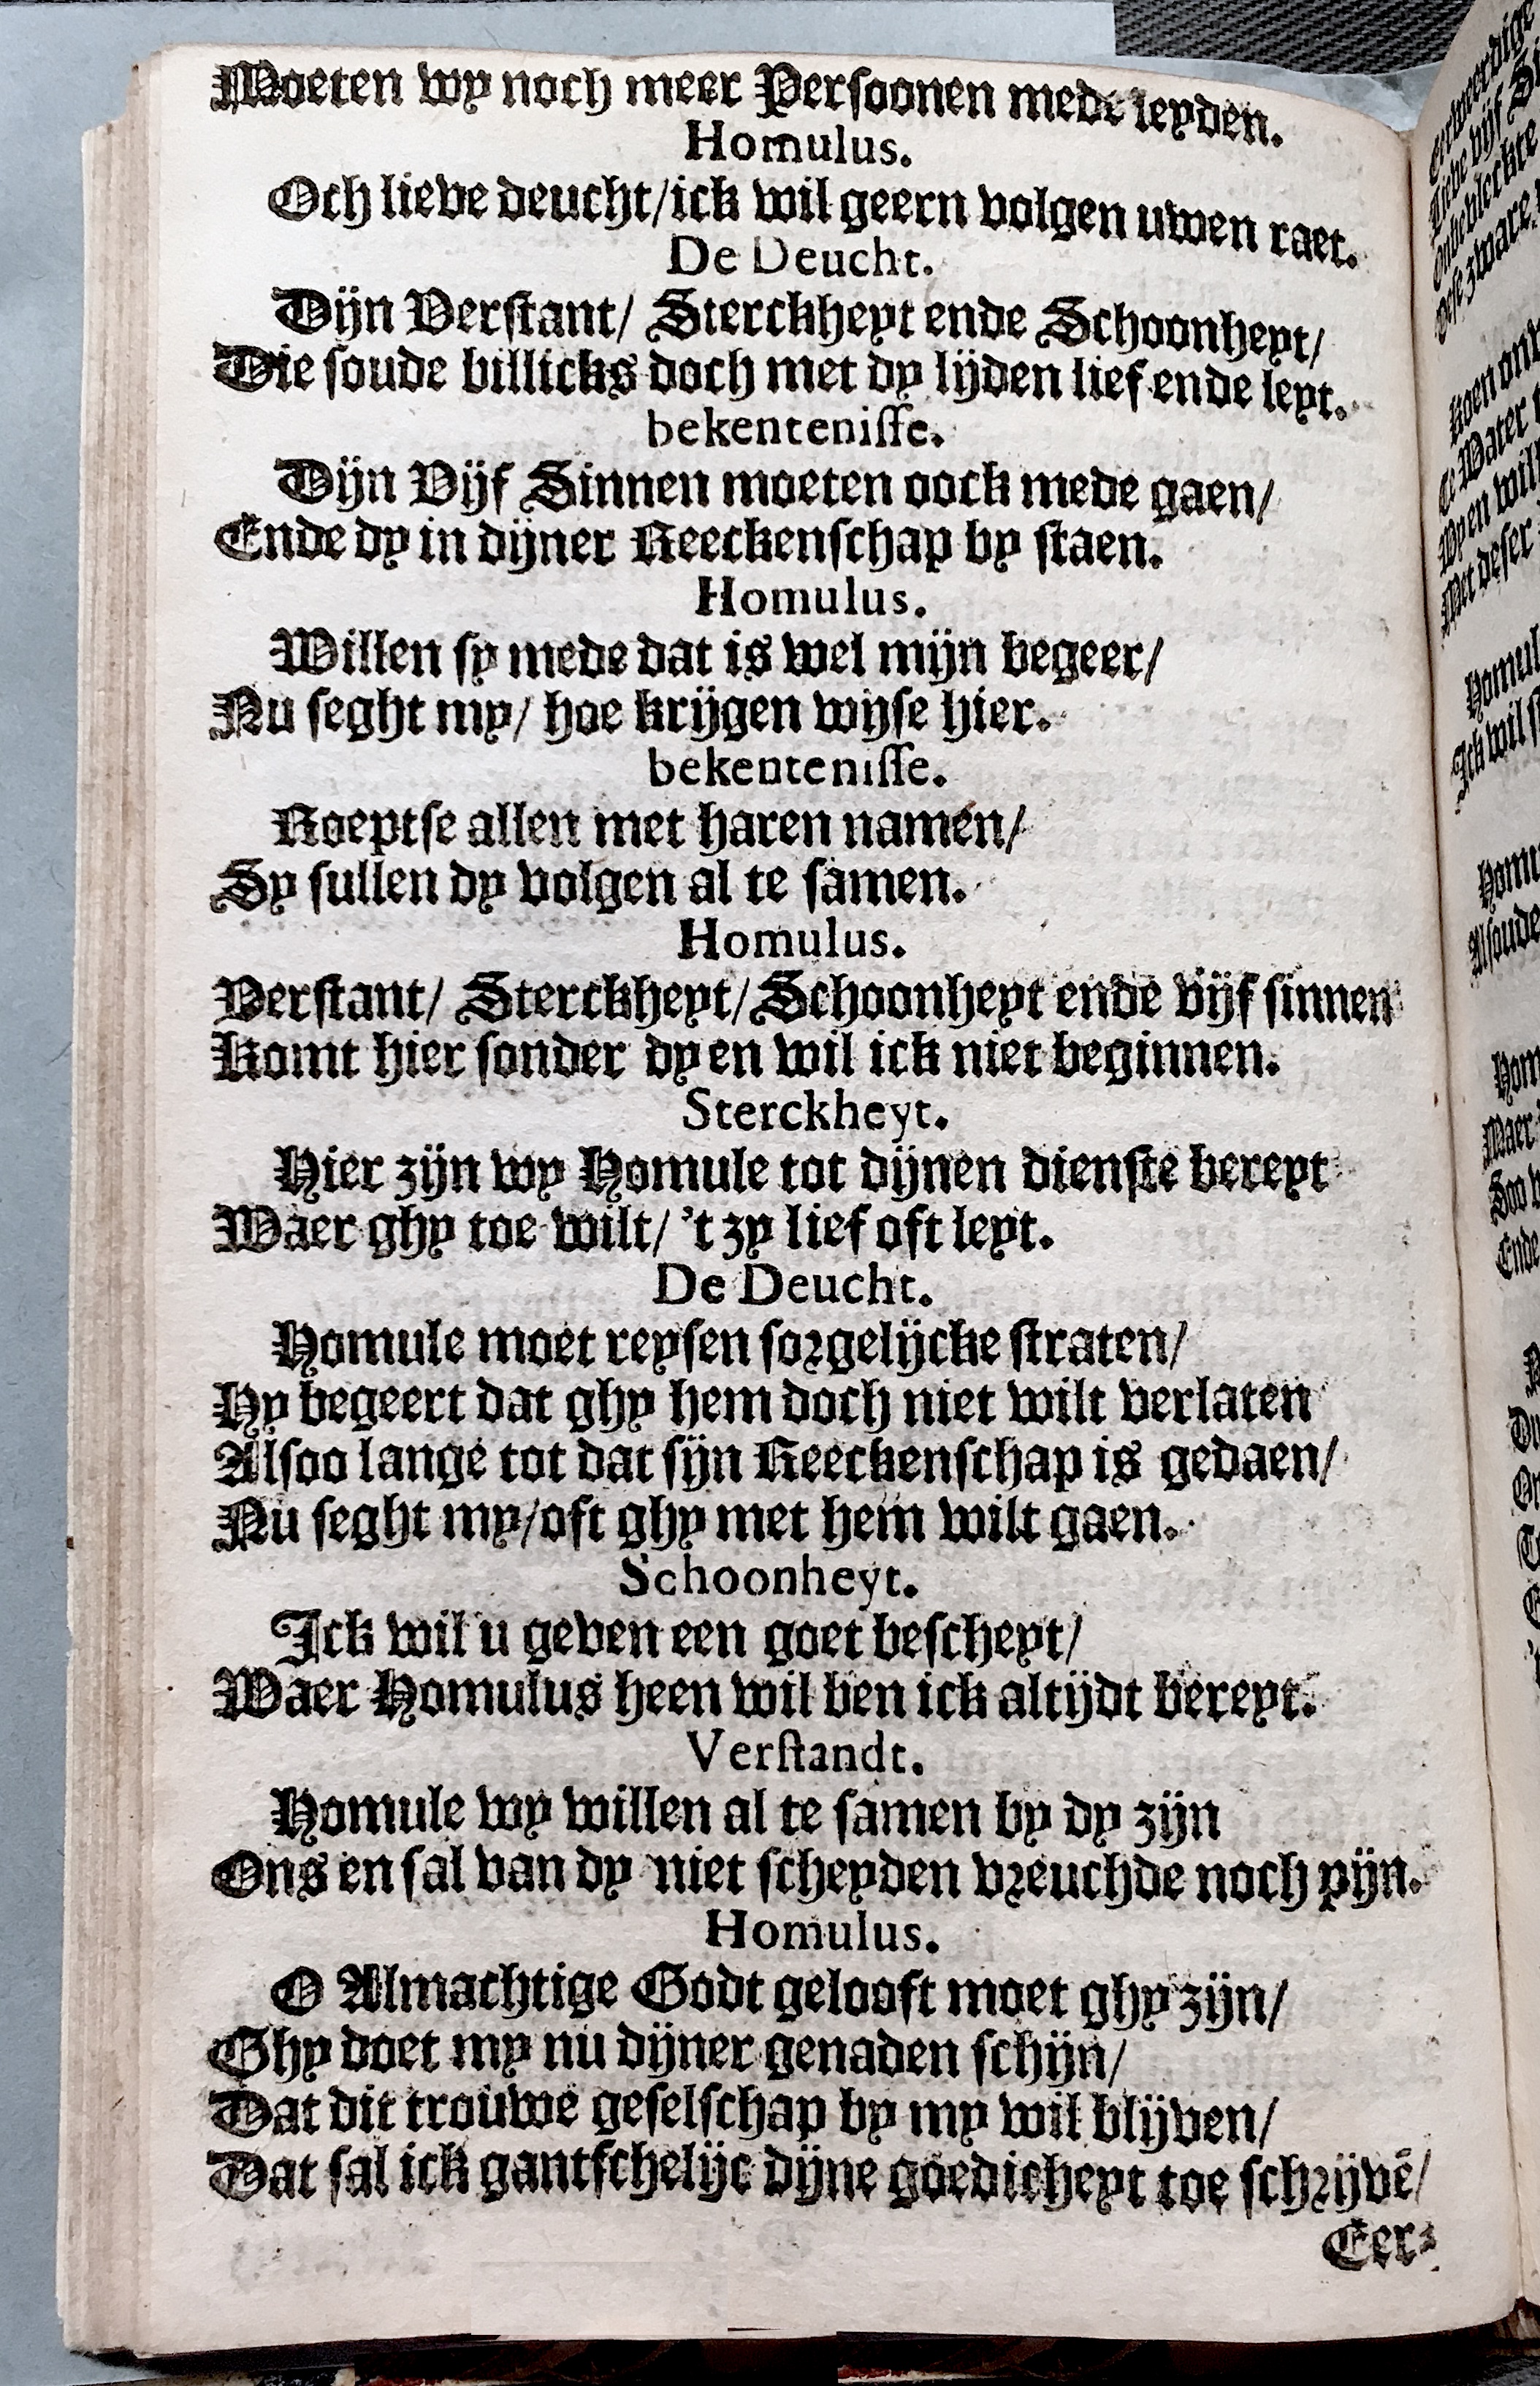 Moeten wy noch meer Persoonen mede leyden.
Homulus.
Och lieve deucht/ick wil geern volgen uwen raet.
De Deucht.
Dijn Verstant/ Sterckheyt ende Schoonheyt/
Die soude billicks doch met dy lijden lief ende leyt.
bekentenisse.
Dijn Vijf Sinnen moeten oock mede gaen/
Ende dy in dijner Reeckenschap by staen.
Homulus.
Willen sy mede dat is wel mijn begeer/
Nu seght my/ hoe krijgen wijse hier.
bekentenisse.
Roeptse allen met haren namen/
Sy sullen dy volgen al te samen.
Homulus.
Verstant/ Sterckheyt/ Schoonheyt ende vijf sinnen
Komt hier sonder dy en wil ick niet beginnen.
Sterckheyt.
Hier zijn wy Homule tot dijnen dienste bereyt
Waer ghy toe wilt/ 't zy lief oft leyt.
De Deucht.
Homule moet reysen sorgelijcke straten/
Hy begeert dat ghy hem doch niet wilt verlaten
Alsoo lange tot dat sijn Reeckenschap is gedaen/
Nu seght my/oft ghy met hem wilt gaen.
Schoonheyt.
Ick wil u geven een goet bescheyt/
Waer Homulus heen wil ben ick altijdt bereyt.
Verstandt.
Homule wy willen al te samen by dy zijn
Ons en sal van dy niet scheyden vreuchde noch pijn.
Homulus.
O Almachtige Godt gelooft moet ghy zijn/
Ghy doet my nu dijner genaden schijn/
Dat dit trouwe geselschap by my wil blijven/
Dat sal ick gantschelijc dijne goedicheyt toe schrijvē/
Eer-